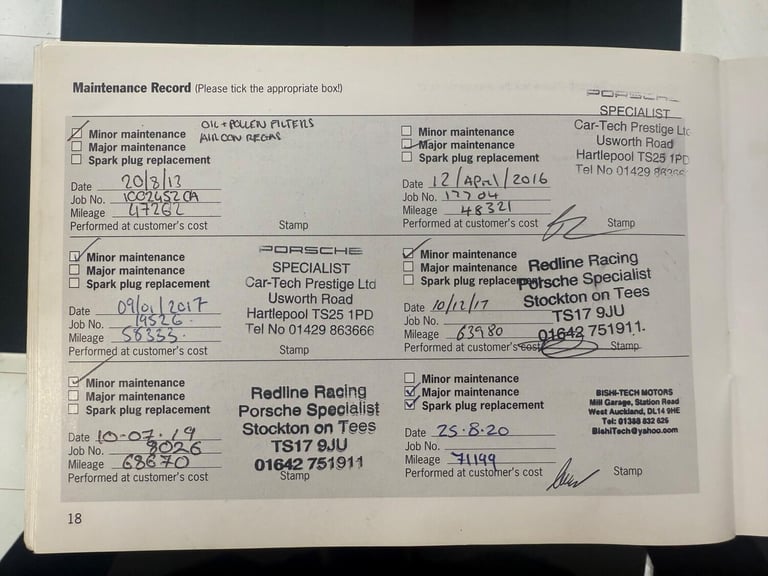 Maintenance Record (Please tick the appropriate box!)
Minor maintenance
Major maintenance
Spark plug replacement
OIL + POLLEN FILTERS
AIRCON REGAS
Date 20/8/13
Job No. 1CO2452CA
Mileage 47262
Performed at customer's cost
Stamp
Minor maintenance
Major maintenance
Spark plug replacement
Date 12/April/2016
Job No. 17704
Mileage 48321
Performed at customer's cost
Stamp
PORSCHE
SPECIALIST
Car-Tech Prestige Ltd
Usworth Road
Hartlepool TS25 1PD
Tel No 01429 863666
Minor maintenance
Major maintenance
Spark plug replacement
Date 09/01/2017
Job No. 19526
Mileage 58333
Performed at customer's cost
PORSCHE
SPECIALIST
Car-Tech Prestige Ltd
Usworth Road
Hartlepool TS25 1PD
Tel No 01429 863666
Stamp
Minor maintenance
Major maintenance
Spark plug replacement
Date 10/12/17
Job No.
Mileage 63980
Performed at customer's cost
Redline Racing
Porsche Specialist
Stockton on Tees
TS17 9JU
01642 751911.
Stamp
Minor maintenance
Major maintenance
Spark plug replacement
Date 10-07-19
Job No. 8026
Mileage 68670
Performed at customer's cost
Redline Racing
Porsche Specialist
Stockton on Tees
TS17 9JU
01642 751911
Stamp
Minor maintenance
Major maintenance
Spark plug replacement
Date 25.8.20
Job No.
Mileage 71199
Performed at customer's cost
BISHI-TECH MOTORS
Mill Garage, Station Road
West Auckland, DL14 9HE
Tel: 01388 832 625
BishiTech@yahoo.com
Stamp
18